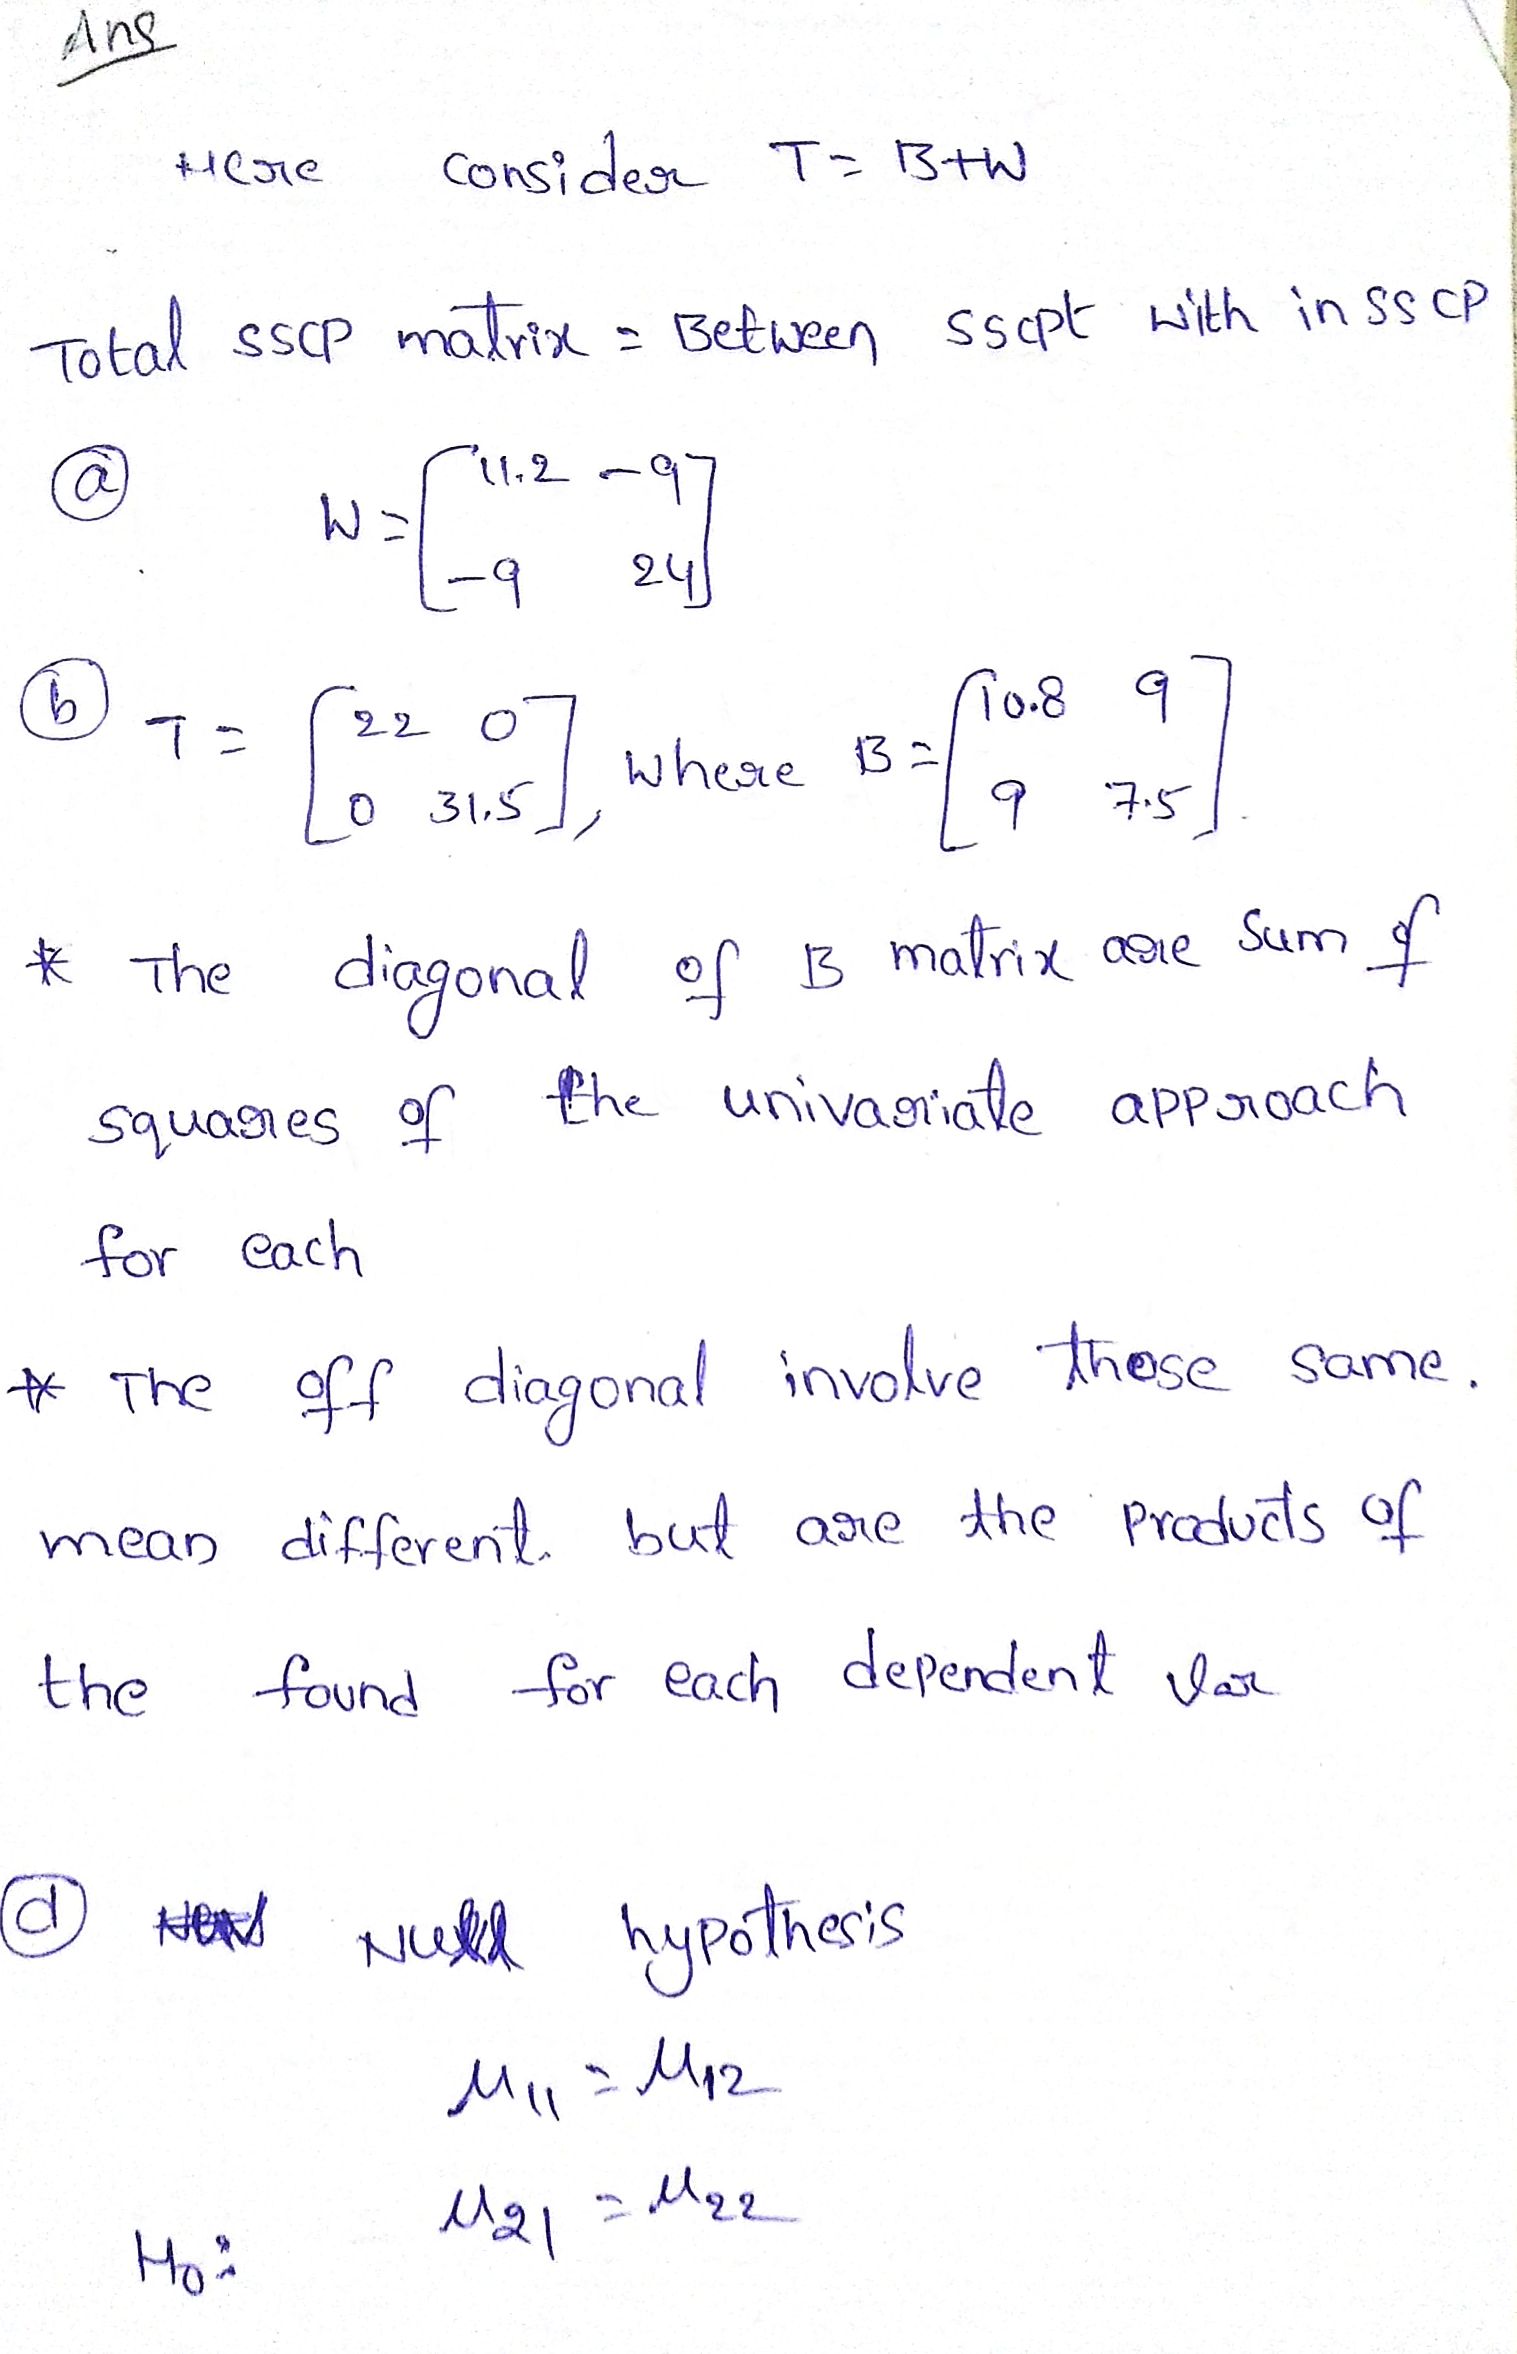 Ans
Here consider T = B+W
Total SSCP matrix = Between SSCP+ with in SSCP
(a) W = [11.2 -9
-9 24]
(b) T = [22 0
0 31.5], where B = [10.8 9
9 7.5].
* The diagonal of B matrix are sum of
squares of the univariate approach
for each
* The off diagonal involve those same.
mean different. but are the products of
the found for each dependent Var
(d) Null hypothesis
μ11 = μ12
μ21 = μ22
H0: